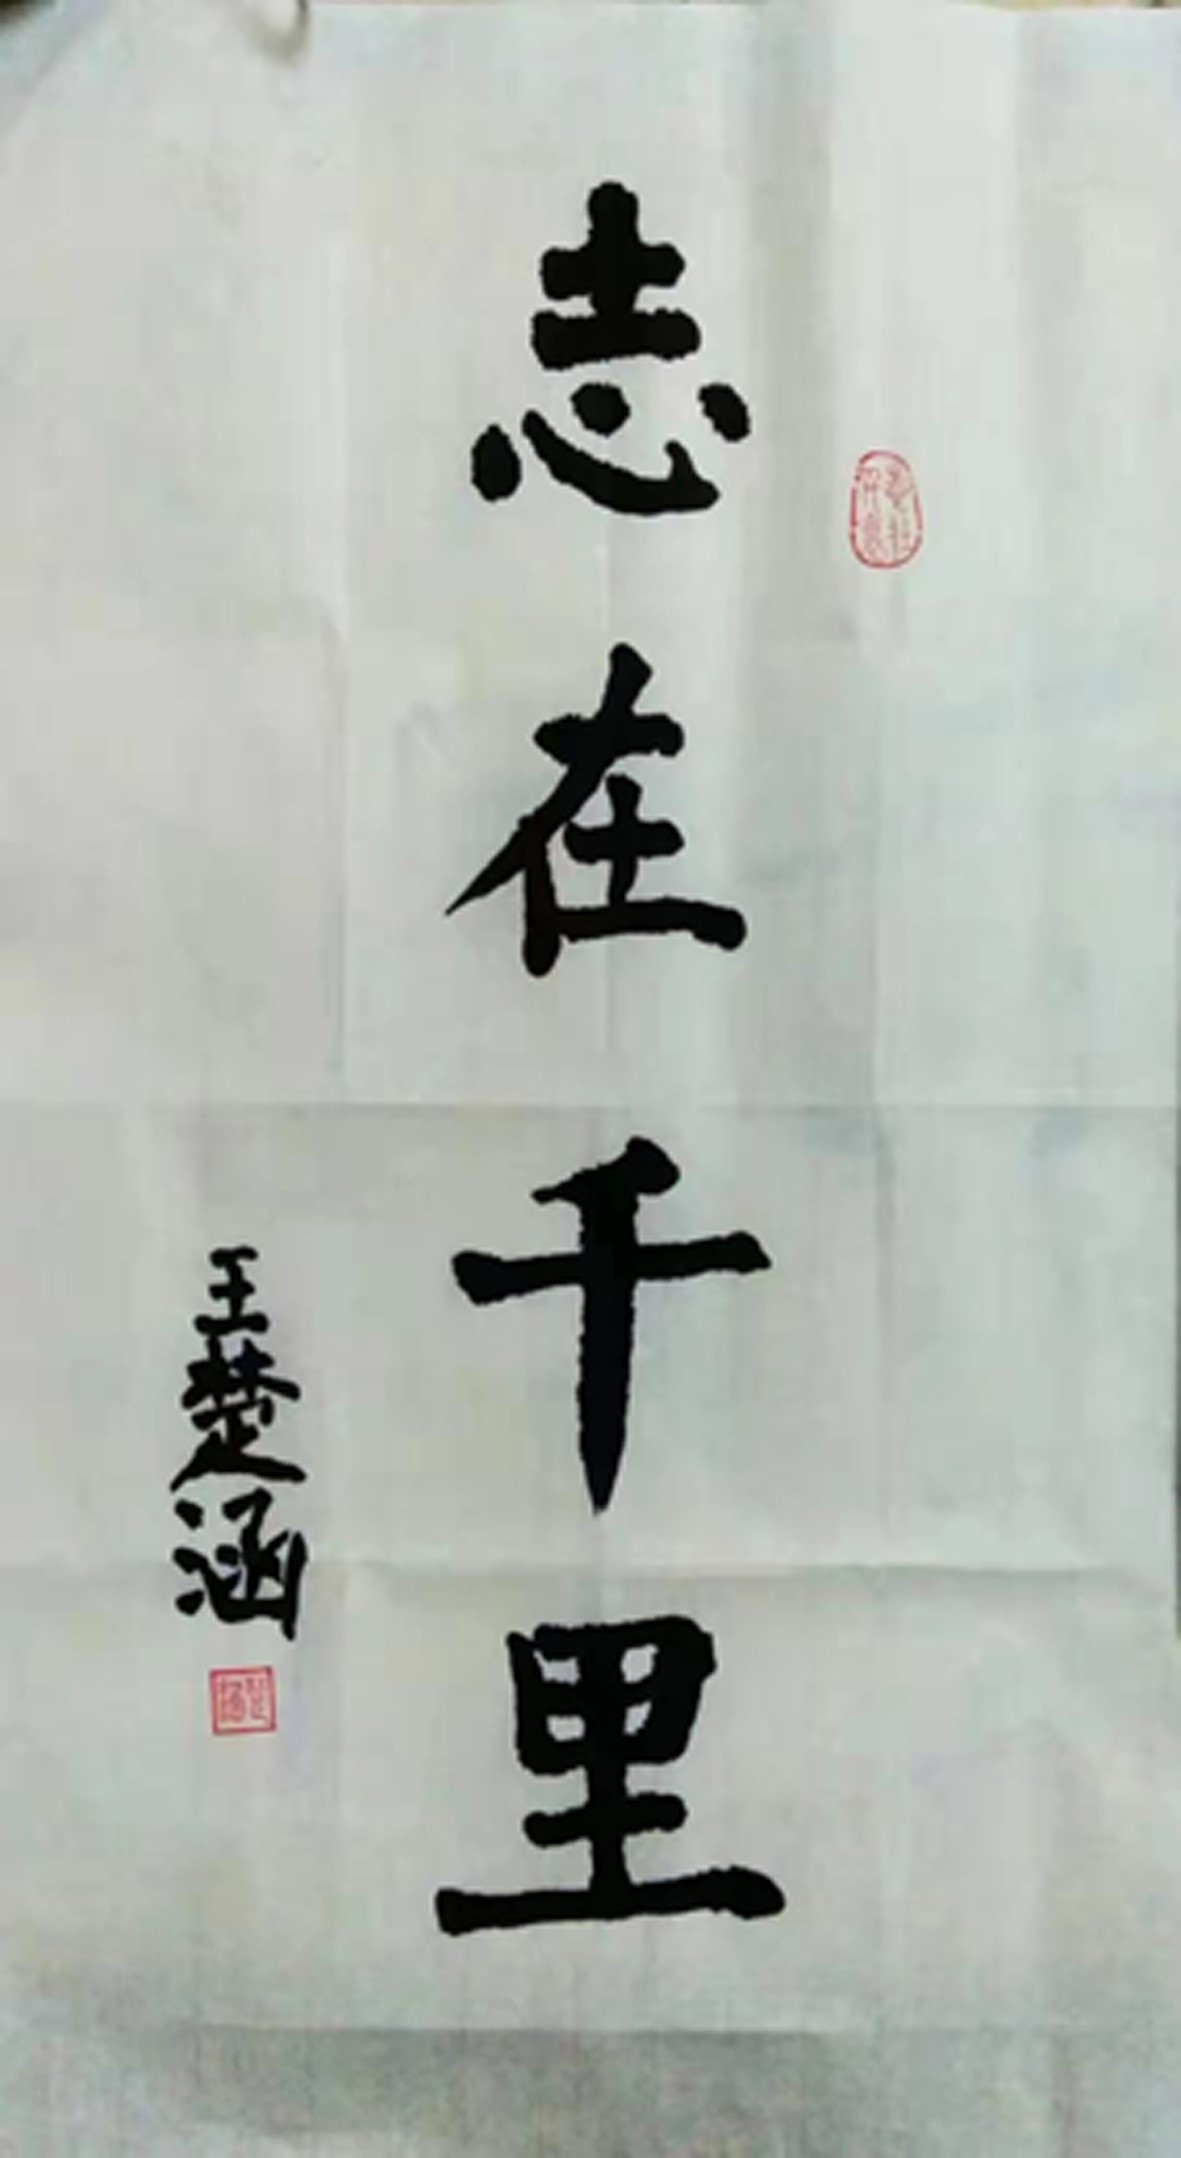 志在千里
王楚涵